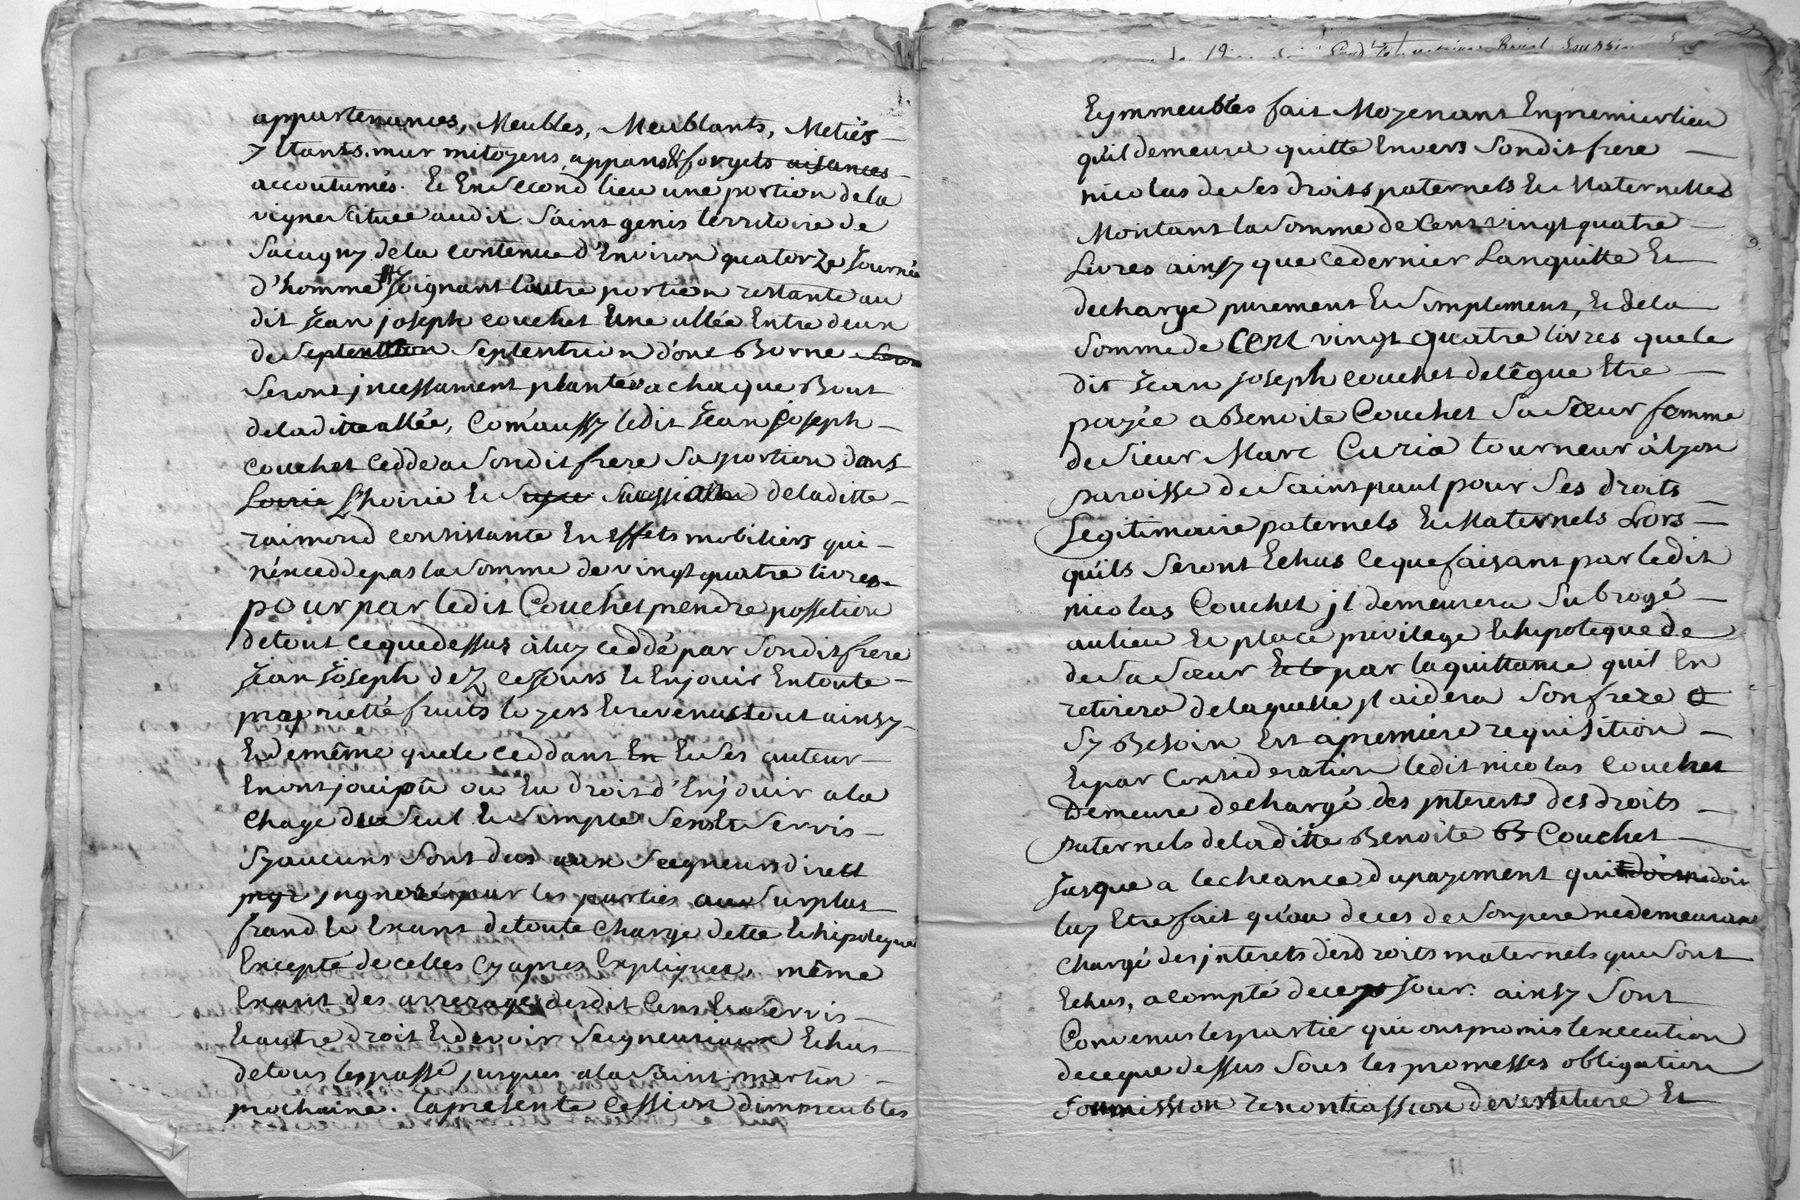 appartenances, Meubles, Meublants, Metiérs
y Etants. mur mitoyens appans & forgets aisances
accoutumés. Et En second lieu une portion de la
vigne située audit Saint genis territoire de
Sacugny de la contenue d'Environ quatorze Journée
d'homme Joignant l'autre portion restante au
dit Jean joseph couchet Une allée Entre deux
de septention Septentrion d'ont Borne Seron
Seront jncessament plantés a chaque Bout
de la ditte allée, Com'aussy ledit Jean joseph
couchet Cedde a Sondit frere Sa portion dans
Loirie L'hoirie de de laditte
raimond consistante En Effets mobiliers qui
n'éxcedde pas la Somme de vingt quatre livres
pour par ledit Couchet prendre possetion
de tout ce que dessus à luy ceddé par Sondit frere
Jean Joseph dez ce Jours Et Enjouir En toute
proprietté fruits loyers Et revenus tout ainsy
Et de même que le ceddant En Et Ses auteur
En ont jouipte ou Eu droit d'Enjouir a la
Chage du Seul Et Simple Sens Et Servis
Sy aucuns Sont dus aux Seigneurs dirett
jngr jngnoré par les parties aux Surplus
franc Et Exant de toute charge dette Et hipoteque
Excepté de celles Cy apres Expliquée, même
Exant des arrerages desdit Cens Et Servis
Et autre droit Et devoir Seigneuriaux Echus
de tous le passé jusques a la Saint martin
prochaine. la presente Cession d'immeubles
Eymmeublés fait Moyenant En premier lieu
qu'il demeura quitte Envers Sondit frere
nicolas de Ses droits paternels Et Maternelles
Montant la Somme de Cent vingt quatre
Livres ainsy que ce dernier L'anquitte Et
decharge purement Et Simplement, Et de la
Somme de Cent vingt quatre livres que le
dit Jean Joseph couchet delégue Etre
payée a Benoite Couchet Sa Sœur femme
de Sieur Marc Curia tourneur à lyon
paroisse de Saint paul pour Ses droits
Legitimaire paternels Et Maternels Lors
qu'ils Seront Echus Ce que faisant par ledit
nicolas Couchet jl demeurera Subrogé
au lieu Et place privilege Et hipoteque de
de Sa Sœur Et le par la quittance quil En
retirera de laquelle jl aidera Son frere
Sy Besoin Est a premiere requisition
Et par Consideration ledit nicolas Couchet
Demeure dechargé des jnterets des droits
paternels de laditte Benoite Couchet
Jusque a lecheance du payement qui doit
luy Etre fait qu'au deces de Son pere ne demeurant
chargé des jnterets des droits maternels que Sont
Echus, a compté de ce Jour. ainsy Sont
Convenus les partie qui ont promis l'execution
de ce que dessus Sous les promesses obligation
Soumission renontiassion de vestiture Et